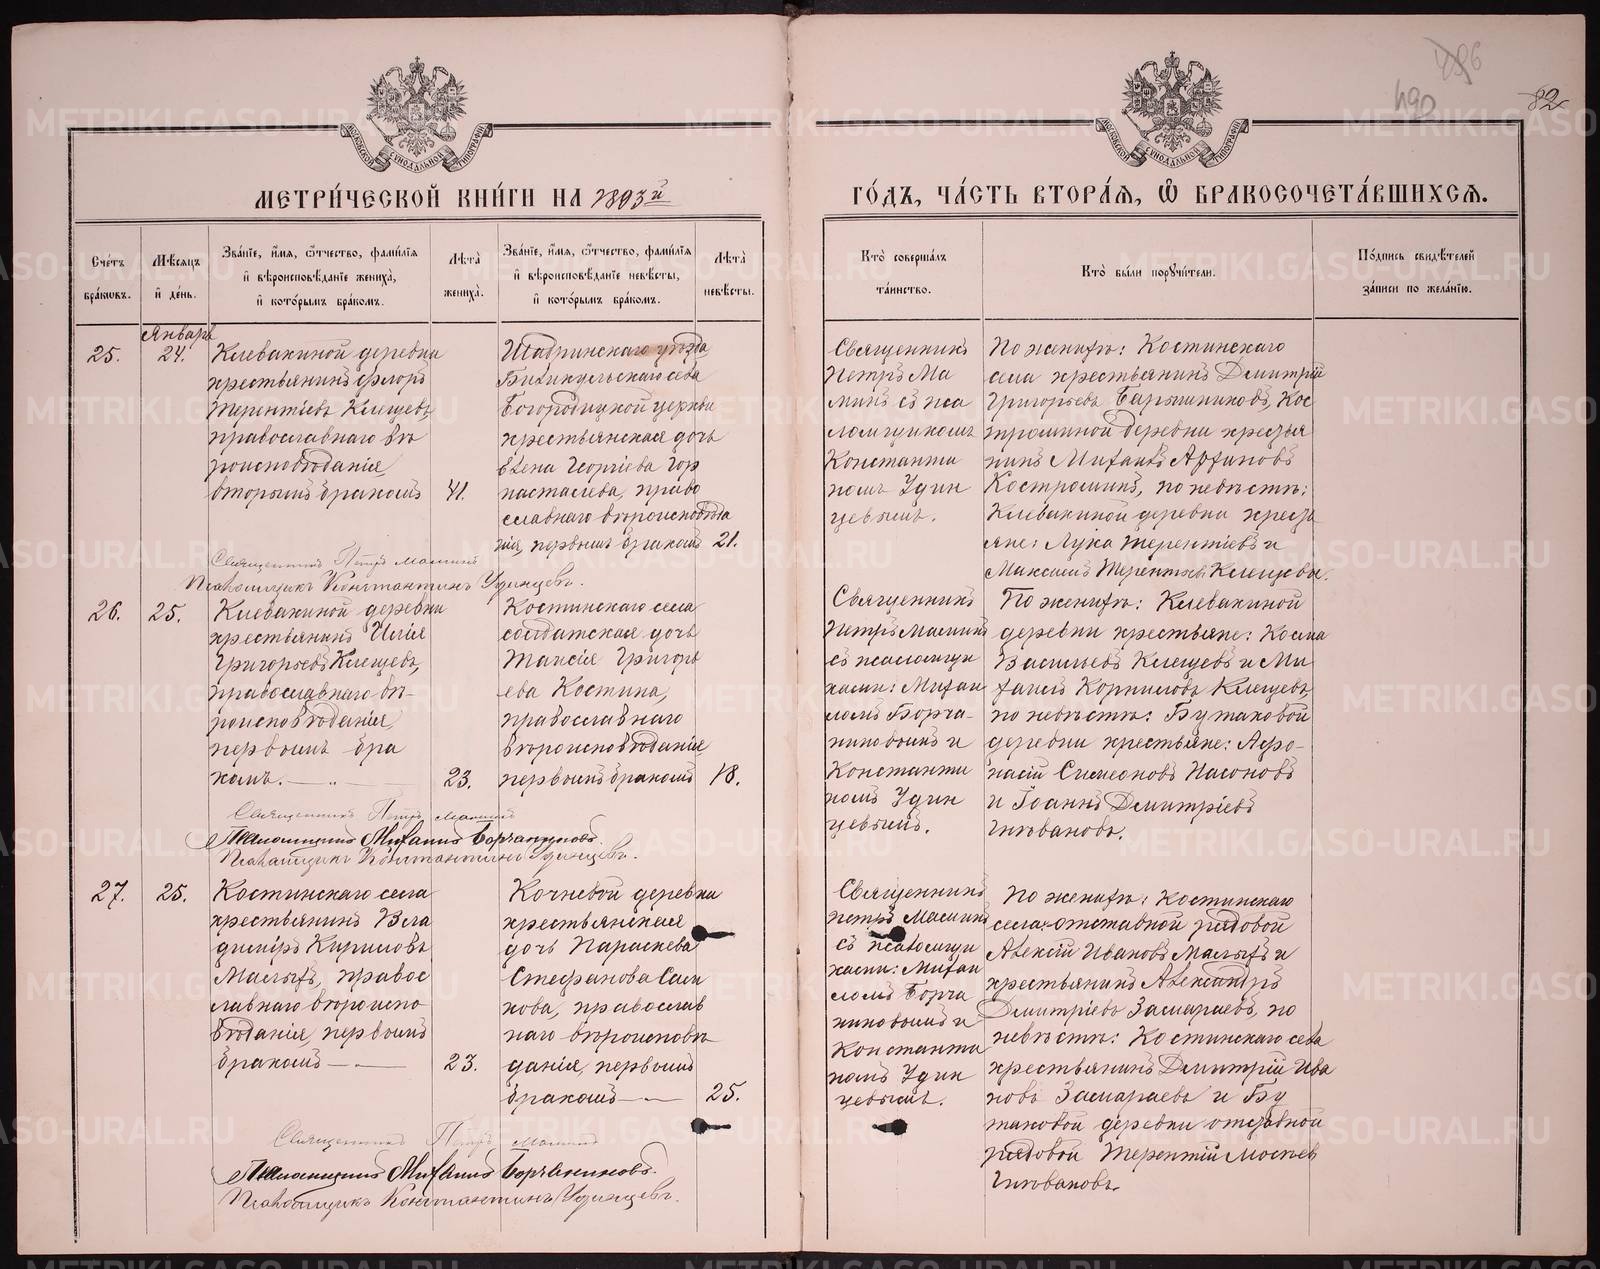 496
490
82
МОСКОВСКОЙ СУНОДАЛЬНОЙ ТИПОГРАФІИ
МОСКОВСКОЙ СУНОДАЛЬНОЙ ТИПОГРАФІИ
МЕТРИ́ЧЕСКОЙ КНИ́ГИ НА 1893й
ГО́ДЪ, ЧА́СТЬ ВТОРА́Я, Ѽ БРАКОСОЧЕТА́ВШИХСЯ.
Сче́тъ бра́кѡвъ.
Мѣ́сяцъ и҆ де́нь.
Зва́нїе, и҆́мя, ѻ҆́тчество, фами́лїя и҆ вѣроисповѣ́данїе жениха̀, и҆ кото́рымъ бра́комъ.
Лѣ́та жениха̀.
Зва́нїе, и҆́мя, ѻ҆́тчество, фами́лїя и҆ вѣроисповѣ́данїе невѣ́сты, и҆ кото́рымъ бра́комъ.
Лѣ́та невѣ́сты.
Кто̀ соверша́лъ та́инство.
Кто̀ бы́ли порꙋчи́тели.
По́дпись свидѣ́телей за́писи по жела́нїю.
Январь
25.
24.
Клевакиной деревни
крестьянинъ Флоръ
Терентіевъ Клещевъ,
православнаго вѣ
роисповѣданія,
вторымъ бракомъ
41.
Шадринскаго уѣзда
Богородицкой церкви
крестьянская дочь
Елена Георгіева Гор
православнаго вѣроисповѣда
нія, первымъ бракомъ
21.
Священникъ
Петръ Ма
минъ съ пса
ломщикомъ
Константи
номъ Удин
цевымъ.
По женихѣ: Костинскаго
села крестьянинъ Димитрій
Григорьевъ Барышниковъ, Кос
троминой деревни крестья
нинъ Михаилъ Архиповъ
Костроминъ, по невѣстѣ:
Клевакиной деревни крестья
яне: Лука Терентіевъ и
Максимъ Терентьевъ Клещевы.
Священникъ Петръ Маминъ
Псаломщикъ Константинъ Удинцевъ.
26.
25.
Клевакиной деревни
крестьянинъ Илія
Григорьевъ Клещевъ,
православнаго вѣ-
роисповѣданія,
первымъ бра
комъ.
23.
Костинскаго села
солдатская дочь
Таисія Григорь
ева Костина,
православнаго
вѣроисповѣданія,
первымъ бракомъ
18.
Священникъ
Петръ Маминъ
съ псаломщи
ками: Михаи
ломъ Борча-
ниновымъ и
Константи
номъ Удин
цевымъ.
По женихѣ: Клевакиной
деревни крестьяне: Косма
Васильевъ Клещевъ и Ми
хаилъ Корниловъ Клещевъ,
по невѣстѣ: Бутаковой
деревни крестьяне: Афо-
насій Симеоновъ Насоновъ
и Іоаннъ Димитріевъ
Голованов.
Священникъ Петръ Маминъ
Псаломщикъ Михаилъ Борчаниновъ.
Псаломщикъ Константинъ Удинцевъ.
27.
25.
Костинскаго села
крестьянинъ Вла
диміръ Кириловъ
Малыхъ, правос
лавнаго вѣроиспо
вѣданія, первымъ
бракомъ
23.
Кочневой деревни
крестьянская
дочь Параскева
Стефанова Сали
кова, православ
наго вѣроисповѣ
данія, первымъ
бракомъ
25.
Священникъ
Петръ Маминъ
съ псаломщи
ками: Михаи
ломъ Борча
ниновымъ и
Константи
номъ Удин
цевымъ.
По женихѣ: Костинскаго
села: отставной рядовой
Алексій Ивановъ Малыхъ и
крестьянинъ Александръ
Димитріевъ Замараевъ, по
невѣстѣ: Костинскаго села
крестьянинъ Димитрій Ива
новъ Замараевъ и Бу
таковой деревни отставной
рядовой Терентій Мосіев
Голованов.
Священникъ Петръ Маминъ
Псаломщикъ Михаилъ Борчаниновъ.
Псаломщикъ Константинъ Удинцевъ.
METRIKI.GASO-URAL.RU